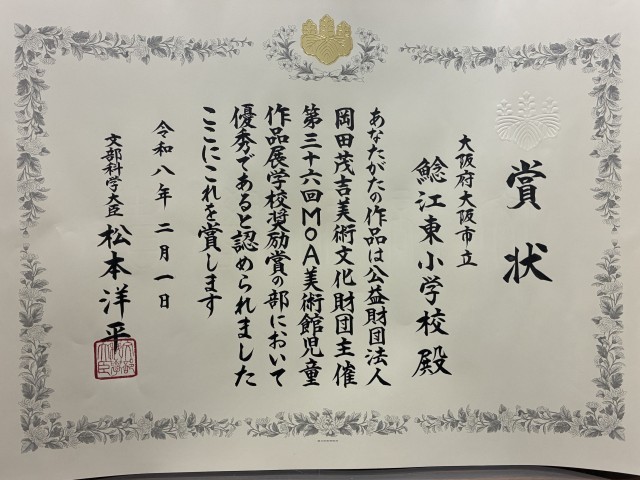 賞状
大阪府大阪市立
鯰江東小学校殿
あなたがたの作品は公益財団法人
岡田茂吉美術文化財団主催
第三十六回MOA美術館児童
作品展学校奨励賞の部において
優秀であると認められました
ここにこれを賞します
令和八年二月一日
文部科学大臣 松本洋平